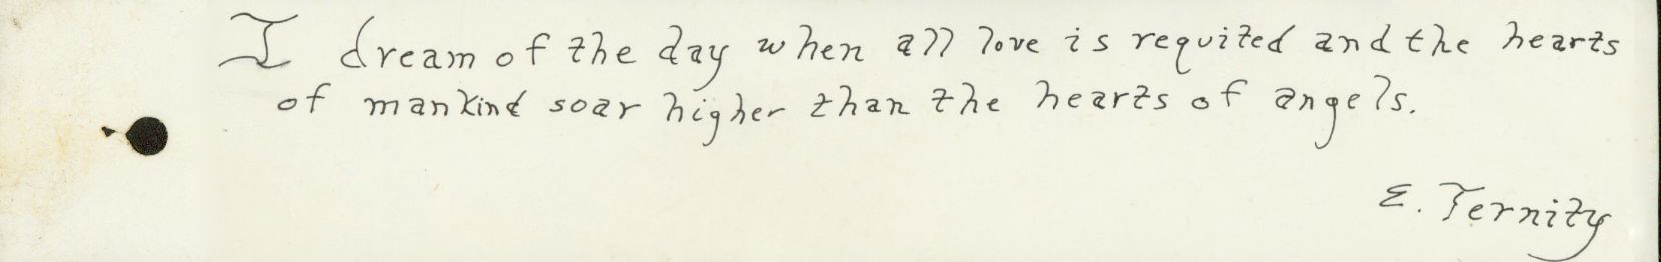 I dream of the day when all love is requited and the hearts
of mankind soar higher than the hearts of angels.
E. Ternity